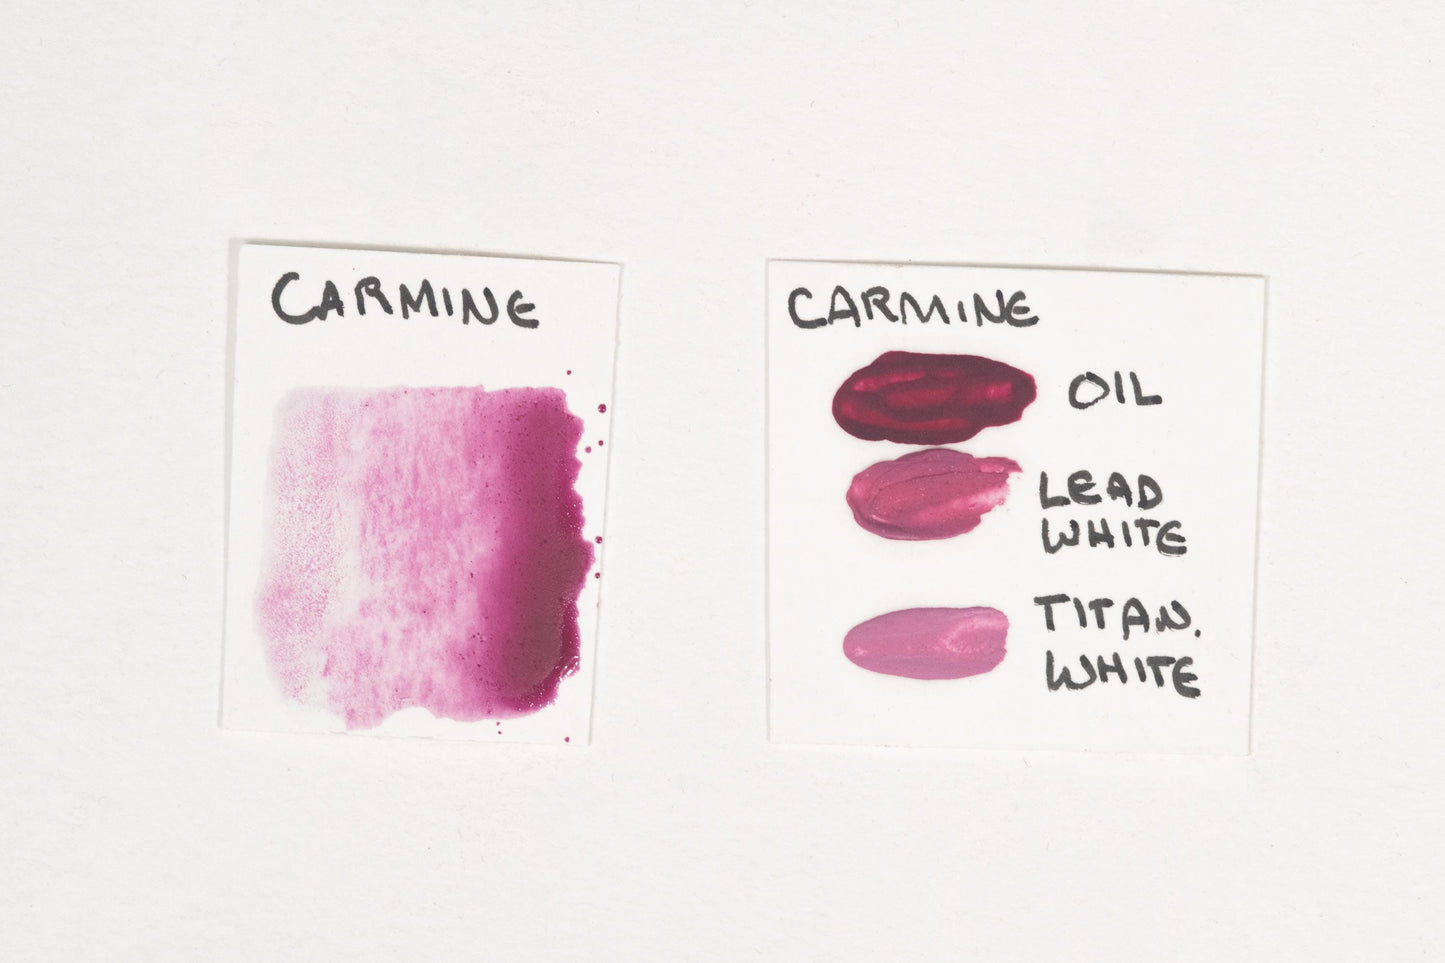 CARMINE
CARMINE
OIL
LEAD
WHITE
TITAN.
WHITE